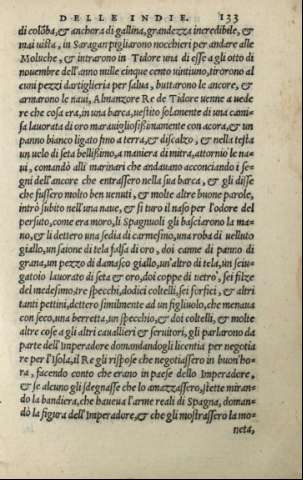 DELLE INDIE. 133
di colōba, & anchora di gallina, grandezza incredibile, &
mai uista, in Saragan pigliarono nocchieri per andare alle
Moluche, & intrarono in Tidore una di esse a gli otto di
nouembre dell'anno mille cinque cento uintiuno, tirorono al
cuni pezzi dartiglieria per salua, buttarono le ancore, &
armarono le naui, Almanzore Re de Tidore uenne a uede
re che cosa era, in una barca, uestito solamente di una cami
sa laurata di oro marauigliosissimamente con acora, & un
panno bianco ligato fino a terra, & discalzo, & nella testa
un uelo di seta bellissimo, a maniera di mitra, attorniò le na
ui, comandò alli marinari che andauano acconciando i se
gni dell'ancore che entrassero nella sua barca, & gli disse
che fussero molto ben uenuti, & molte altre buone parole,
intrò subito nell'una naue, & si turò il naso per l'odore del
persuto, come era moro, li Spagnuoli gli basciarono la ma-
no, & li dettero una sedia di carmesino, una roba di uelluto
giallo, un saione di tela falsa di oro, doi canne di panno di
grana, un pezzo di damasco giallo, un'altro di tela, un sciu-
gatoio laurato di seta & oro, doi coppe di uetro, sei filze
del medesimo, tre specchi, dodici coltelli, sei forfici, & altri
tanti pettini, dettero similmente ad un figliuolo, che menaua
con seco, una berretta, un specchio, & doi coltelli, & molte
altre cose a gli altri cauallieri & seruitori, gli parlarono da
parte dell'Imperadore domandandogli licentia per negotia
re per l'Isola, il Re gli rispose che negotiassero in buon'ho-
ra, facendo conto che erano in paese dello Imperadore,
& se alcuno gli sdegnasse che lo amazzassero, stette miran-
do la bandiera, che haueua l'arme reali di Spagna, doman-
dò la figura dell'Imperadore, & che gli mostrassero la mo-
neta,